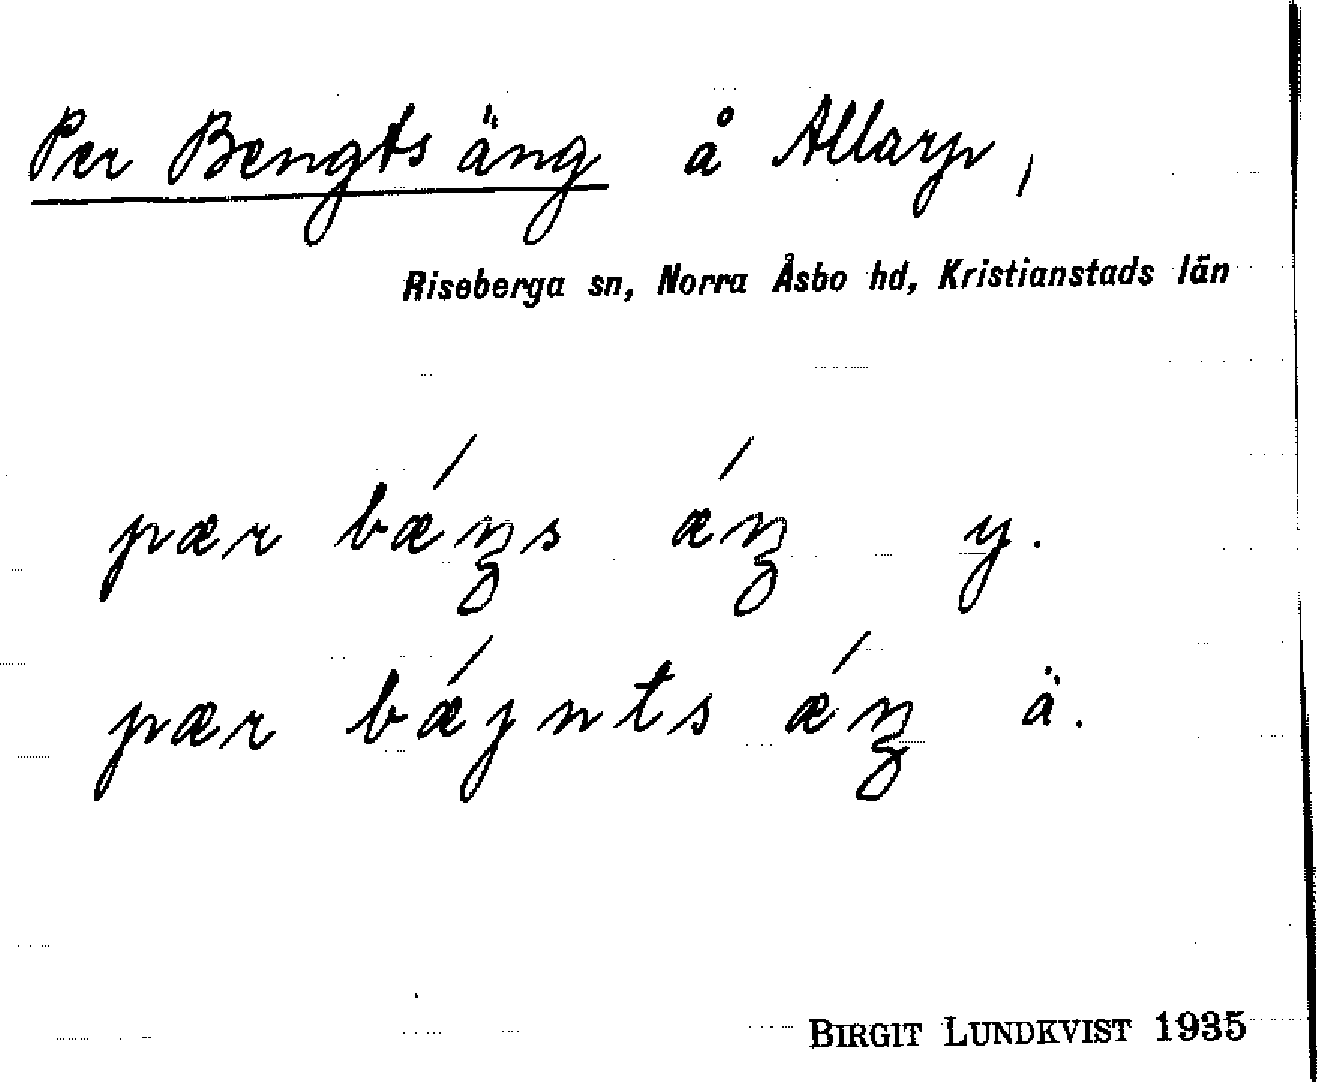 Per Bengts äng å Allarp,
Riseberga sn, Norra Åsbo hd, Kristianstads län
pær bǽŋs ǽŋ y.
pær bǽŋnts ǽŋ ä.
BIRGIT LUNDKVIST 1935